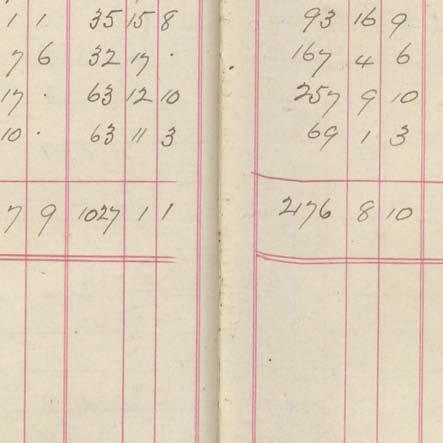 1 1 35 15 8 93 16 9
7 6 32 17 . 167 4 6
17 . 63 12 10 257 9 10
10 . 63 11 3 69 1 3
7 9 1027 1 1 2176 8 10